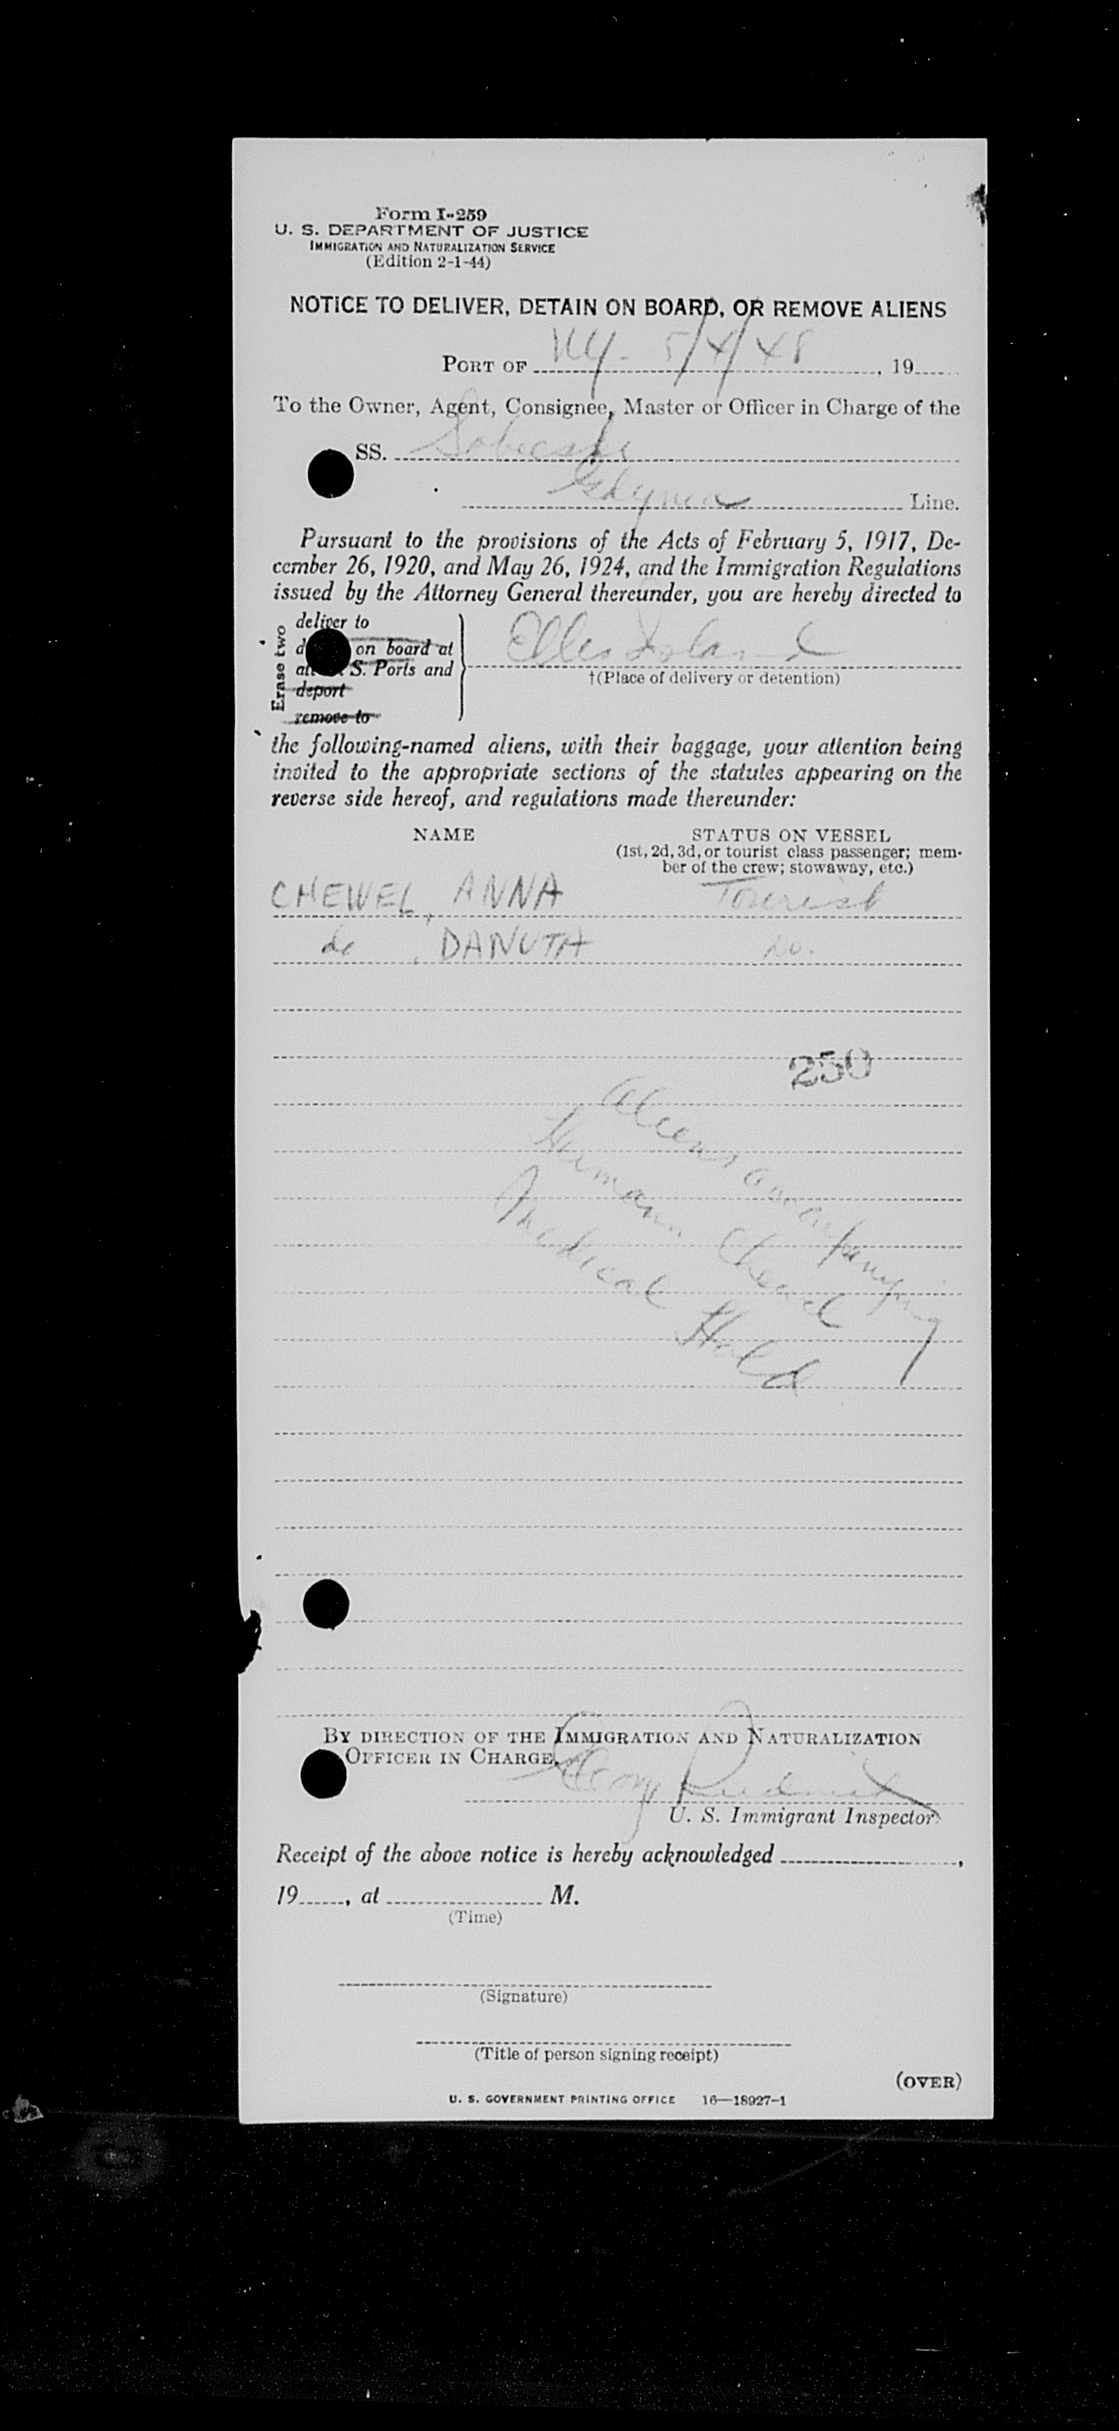 Form I-259
U. S. DEPARTMENT OF JUSTICE
IMMIGRATION AND NATURALIZATION SERVICE
(Edition 2-1-44)
NOTICE TO DELIVER, DETAIN ON BOARD, OR REMOVE ALIENS
PORT OF NY- 5/4/48, 19
To the Owner, Agent, Consignee, Master or Officer in Charge of the
SS. Sobieski
Gdynia Line.
Pursuant to the provisions of the Acts of February 5, 1917, De-
cember 26, 1920, and May 26, 1924, and the Immigration Regulations
issued by the Attorney General thereunder, you are hereby directed to
Erase two
deliver to
on board at
S. Ports and
deport
remove to
Ellis Island
†(Place of delivery or detention)
the following-named aliens, with their baggage, your attention being
invited to the appropriate sections of the statutes appearing on the
reverse side hereof, and regulations made thereunder:
NAME STATUS ON VESSEL
(1st, 2d, 3d, or tourist class passenger; mem-
ber of the crew; stowaway, etc.)
CHEWEL, ANNA Tourist
do , DANUTA do.
250
Aliens accompanying
Hermann Chewel
Medical Hold
BY DIRECTION OF THE IMMIGRATION AND NATURALIZATION
OFFICER IN CHARGE.
U. S. Immigrant Inspector.
Receipt of the above notice is hereby acknowledged ,
19 , at M.
(Time)
(Signature)
(Title of person signing receipt)
(OVER)
U. S. GOVERNMENT PRINTING OFFICE 16—18927-1